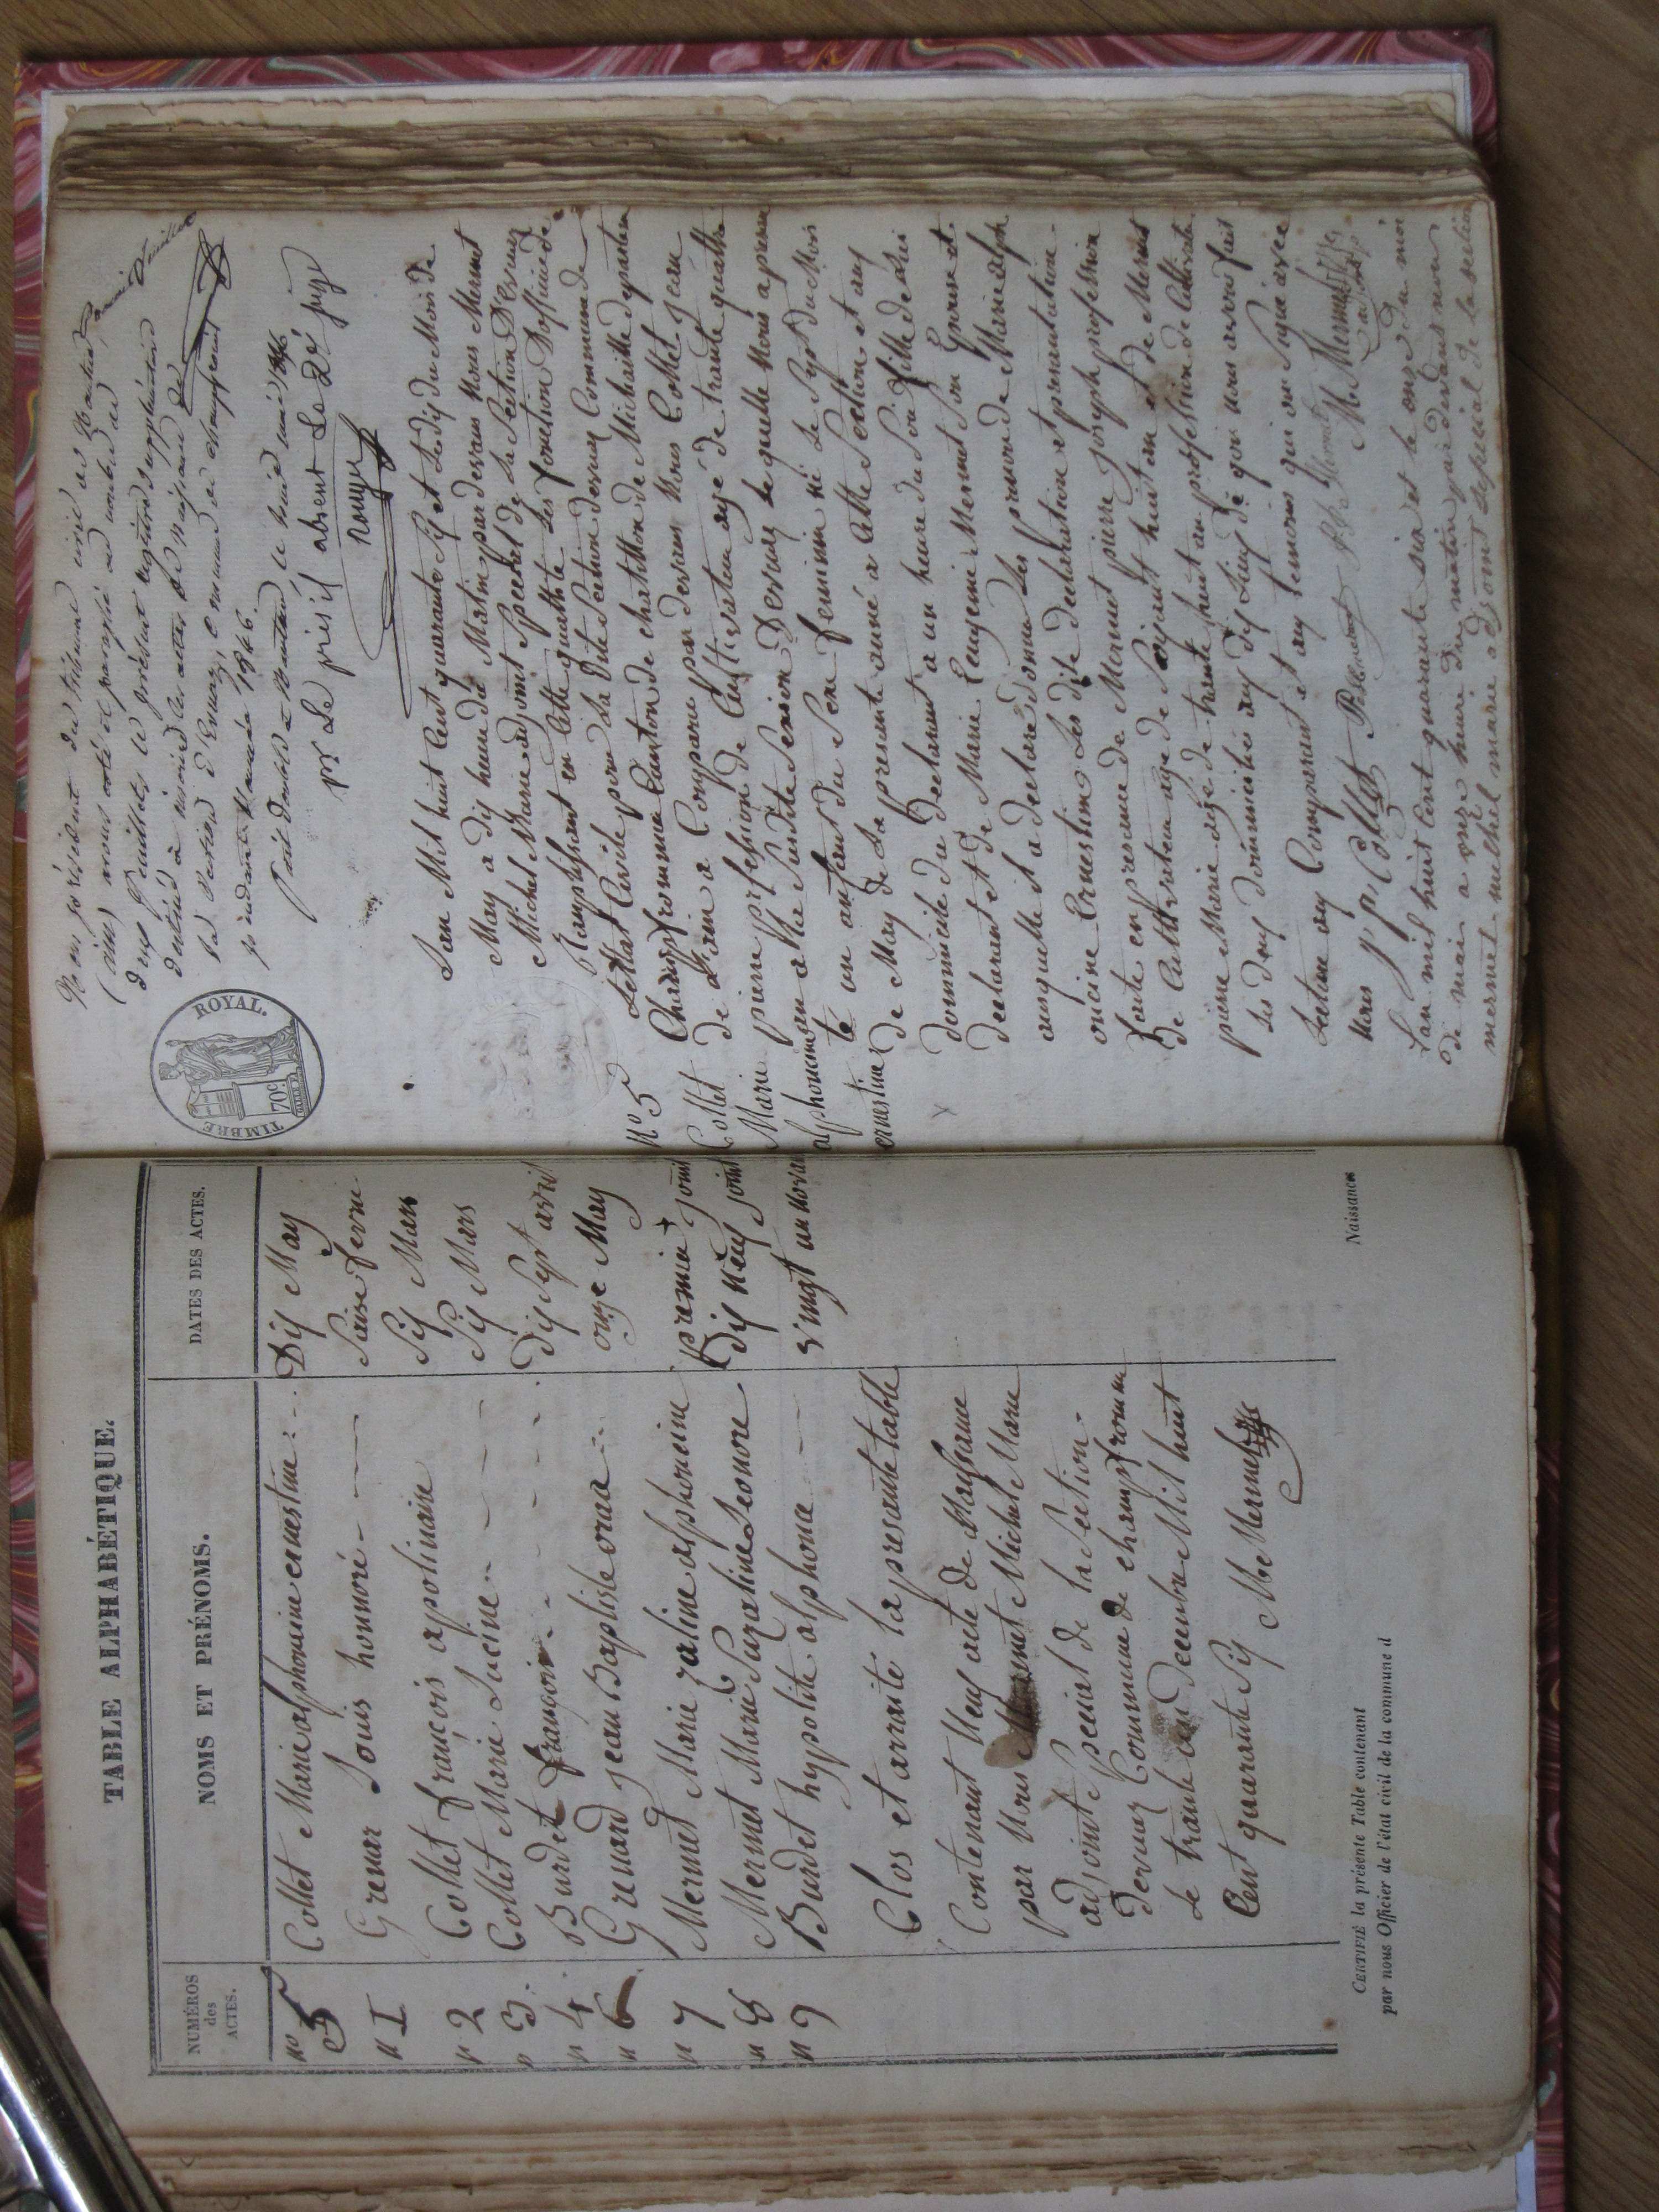 TABLE ALPHABÉTIQUE.
NUMÉROS des ACTES.
NOMS ET PRÉNOMS.
DATES DES ACTES.
no 5 Collet Marie alphonsine ernestine Dix May
" 1 Grenar Louis honnoré Saise fevrié
" 2 Collet françois apolinaire Six Mars
" 3 Collet Marie Lucine Six Mars
" 4 Burdet françois Dix Sept avril
" 6 Grenard jean Baptiste orma onze May
" 7 Mermet Marie zaline alphoncine premier
" 8 Mermet Marie Suzaline Leonore Dix Neuf
" 9 Burdet hypolite alphonce vingt un
Clos et arraité la presante table
Contenant Neuf acte de Naissance
par Nous Mermet Michel Marie
adjoint Special de la Section
dervuaz Commune de champfromme
le trante un Decembre Mil huit
Cent quarante Six MMermet
CERTIFIÉ la présente Table contenant
par nous Officier de l'état civil de la commune d
Naissances
TIMBRE ROYAL.
70c.
président du tribunal civil de Nantua
(ain) avons coté et paraphé au nombre de
deux feuillets le présent registre supplémentaire
destiné à inscrire les actes de Naissance de
la Section d'Ervuaz, Commune de Champfromier
pendant l'année 1846.
Fait à Nantua le huit mai 1846
pr Le présid absent Le
L'an Mil huit Cent quarante Six et Le dix du Mois de
May a dix heure du Matin par devans Nous Mermet
Michel Marie adjoint Special de La Section D'Ervuaz
Ramplissant en Cette quallité Les fonction Dofficier de
Lettat Civile pour La Dite Section dervuaz Commune de
no 5
Champfromme Canton de chatillon de Michaille departeman
Collet
de L'ain a Comparu par devans Nous Collet jean
Marie
pierre profession de Cultivateur agé de trante quattre
alphoncine
ernestine
té un anfant du Sexe feminin né Le Sept du Mois
de May de La presante année a Cette Section et au
Dommicile du Declarant a un heure du Soir fille dudit
Declarant et de Marie Eugenie Mermet Son Epouse et
auquelle il a declaré donné Les prenon de Marie alph
oncine Ernestine Les dite declaration et presantation
faite en presance de Mermet pierre joseph profession
de Cultivateur agé de Soixante huit an et de Mermet
pierre Marie agé de trante huit an profession de Cultivateur
Les deux dommicilies aux dix Lieux de quoi nous avons fait
Lecture aux Comparant et aux temoins qui on Signé avec
Nous j p Collet PMermet MMermet
L'an mil huit cent quarante six et le onze du moi
de mai a onze heure du matin par devant nous
mermet michel marie adjoint special de la section